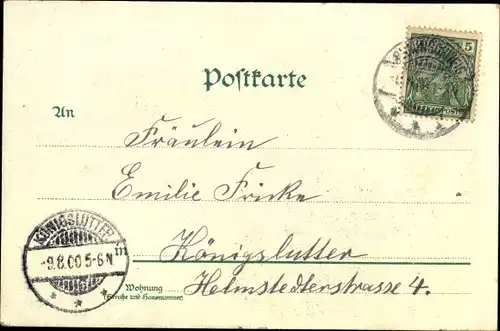 5
Postkarte
An
Fräulein
Emilie Fricke
KÖNIGSLUTTER
-9.8.00 5-6 N
in
Königslutter
Wohnung
(Straße und Hausnummer)
Helmstedterstrasse 4.